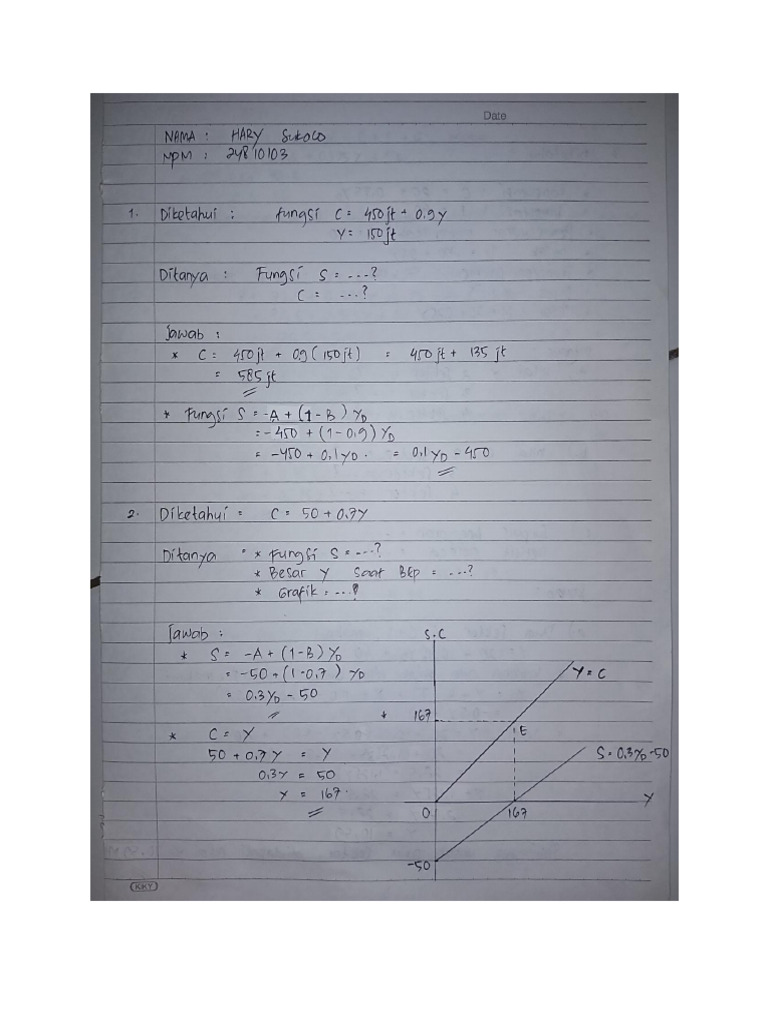 Date
NAMA : HARY SUKOCO
NPM : 24810103
1. Diketahui : fungsi C = 450 jt + 0.9 Y
Y = 150 jt
Ditanya : Fungsi S = ....?
C = ....?
Jawab :
* C = 450 jt + 0.9 ( 150 jt ) = 450 jt + 135 jt
= 585 jt
* Fungsi S = -A + (1 - B ) YD
= -450 + (1 - 0.9) YD
= -450 + 0,1 YD . = 0,1 YD - 450
2. Diketahui = C = 50 + 0.7Y
Ditanya : * Fungsi S = ....?
* Besar Y saat BEP = ....?
* Grafik = ...?
Jawab :
* S = -A + (1-B) YD
= -50 + (1-0,7 ) YD
= 0.3 YD - 50
* C = Y
50 + 0.7 Y = Y
0.3Y = 50
Y = 167.
*
S.C
Y = C
167
E
S = 0,3YD-50
0
167
Y
-50
KKY